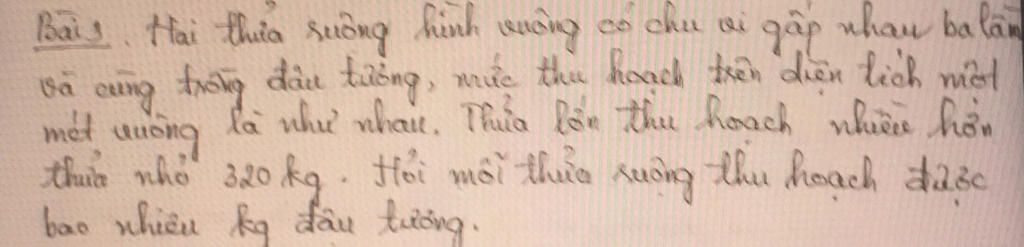 Bài 3. Hai thửa ruộng hình vuông có chu vi gấp nhau ba lần
và cùng trồng đậu tương, mức thu hoạch trên diện tích một
mét vuông là như nhau. Thửa lớn thu hoạch nhiều hơn
thửa nhỏ 320 kg. Hỏi mỗi thửa ruộng thu hoạch được
bao nhiêu kg đậu tương.